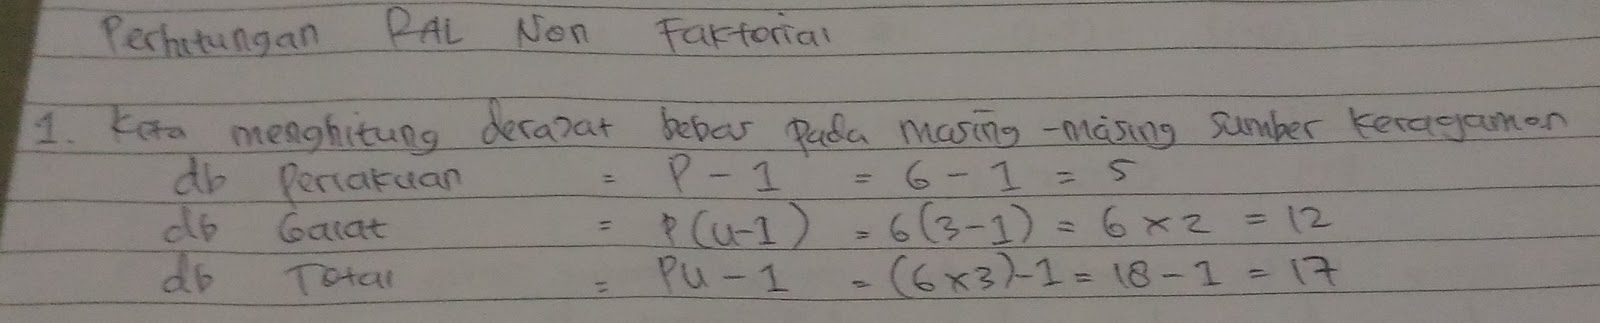 Perhitungan RAL Non Faktorial
1. Kita menghitung derajat bebas pada masing-masing sumber keragaman
db Perlakuan = P - 1 = 6 - 1 = 5
db Galat = P(u-1) = 6(3-1) = 6 x 2 = 12
db Total = PU - 1 = (6x3)-1 = 18 - 1 = 17